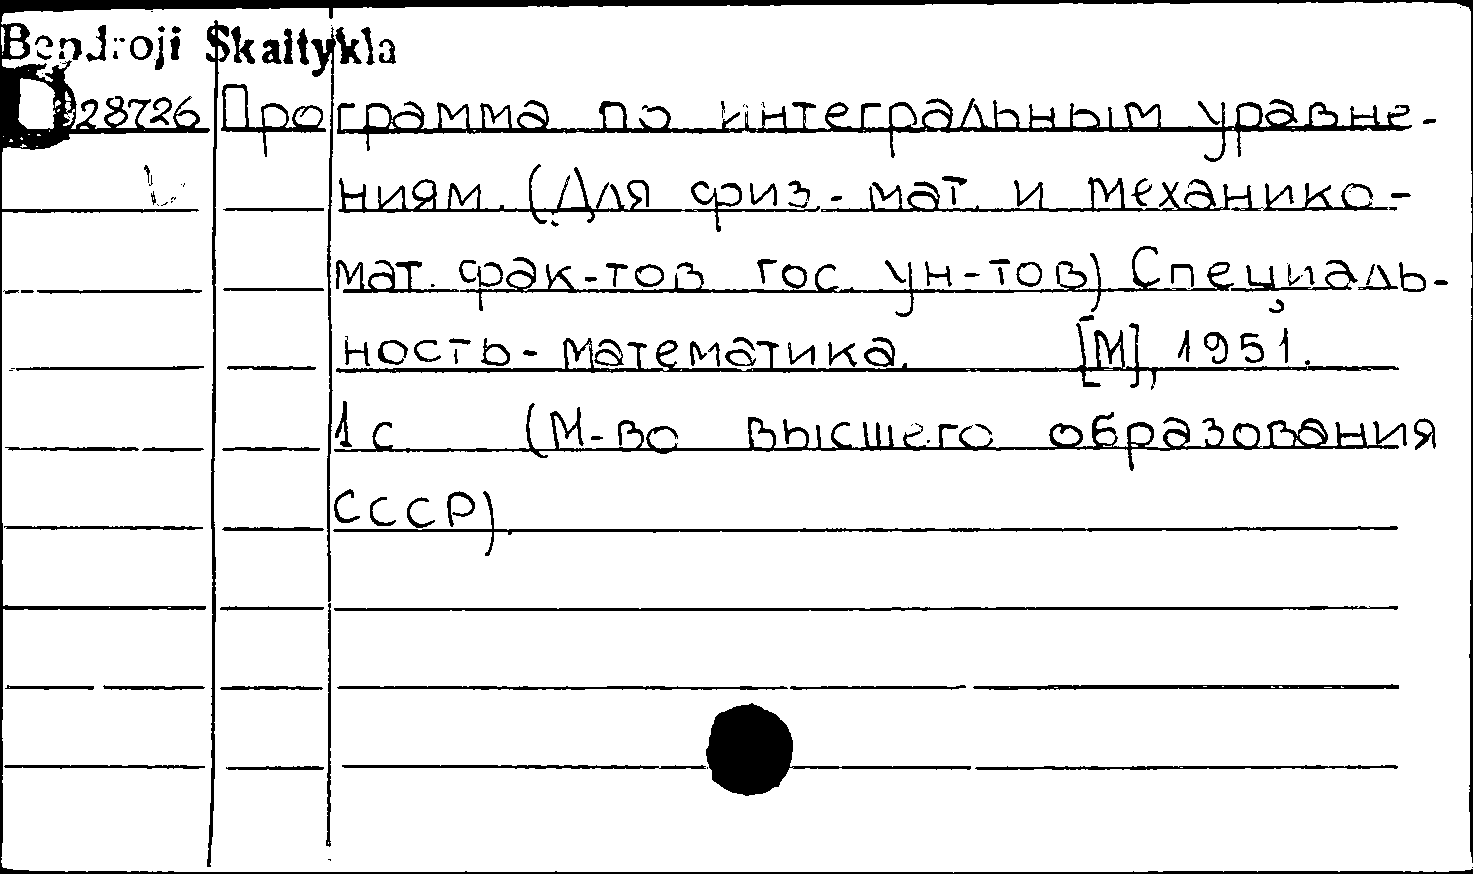 Bendroji Skaitykla
D 28726 Программа по интегральным уравне-
ниям. (Для физ.-мат. и механико-
мат. фак-тов гос. ун-тов) Специаль-
ность - математика. [М], 1951.
1 с (М-во высшего образования
СССР).